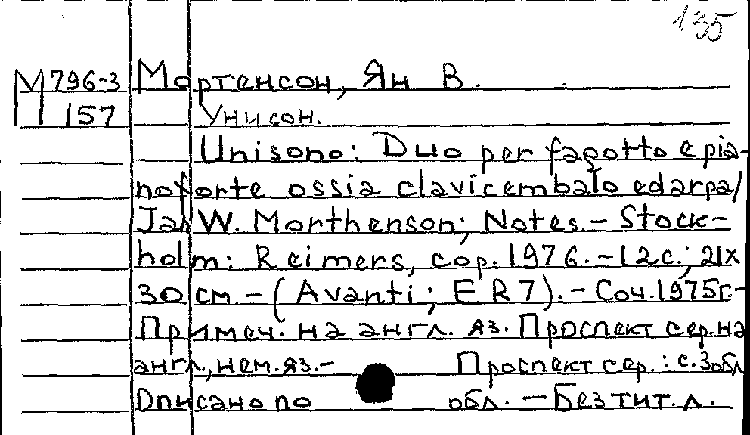 135
М 796-3 Мортенсон, Ян В.
157 Унисон.
Unisono: Duo per fagotto e pia-
noforte ossia clavicembalo ed arpa/
Jan W. Morthenson; Notes.- Stock-
holm: Reimers, cop. 1976.-12с.; 21х
30 см.-(Avanti; ER7).-Соч.1975г.-
Примеч. на англ. яз. Проспект сер. на
англ., нем. яз.- Проспект сер.: с.3 обл
Описано по обл.-Без тит. л.